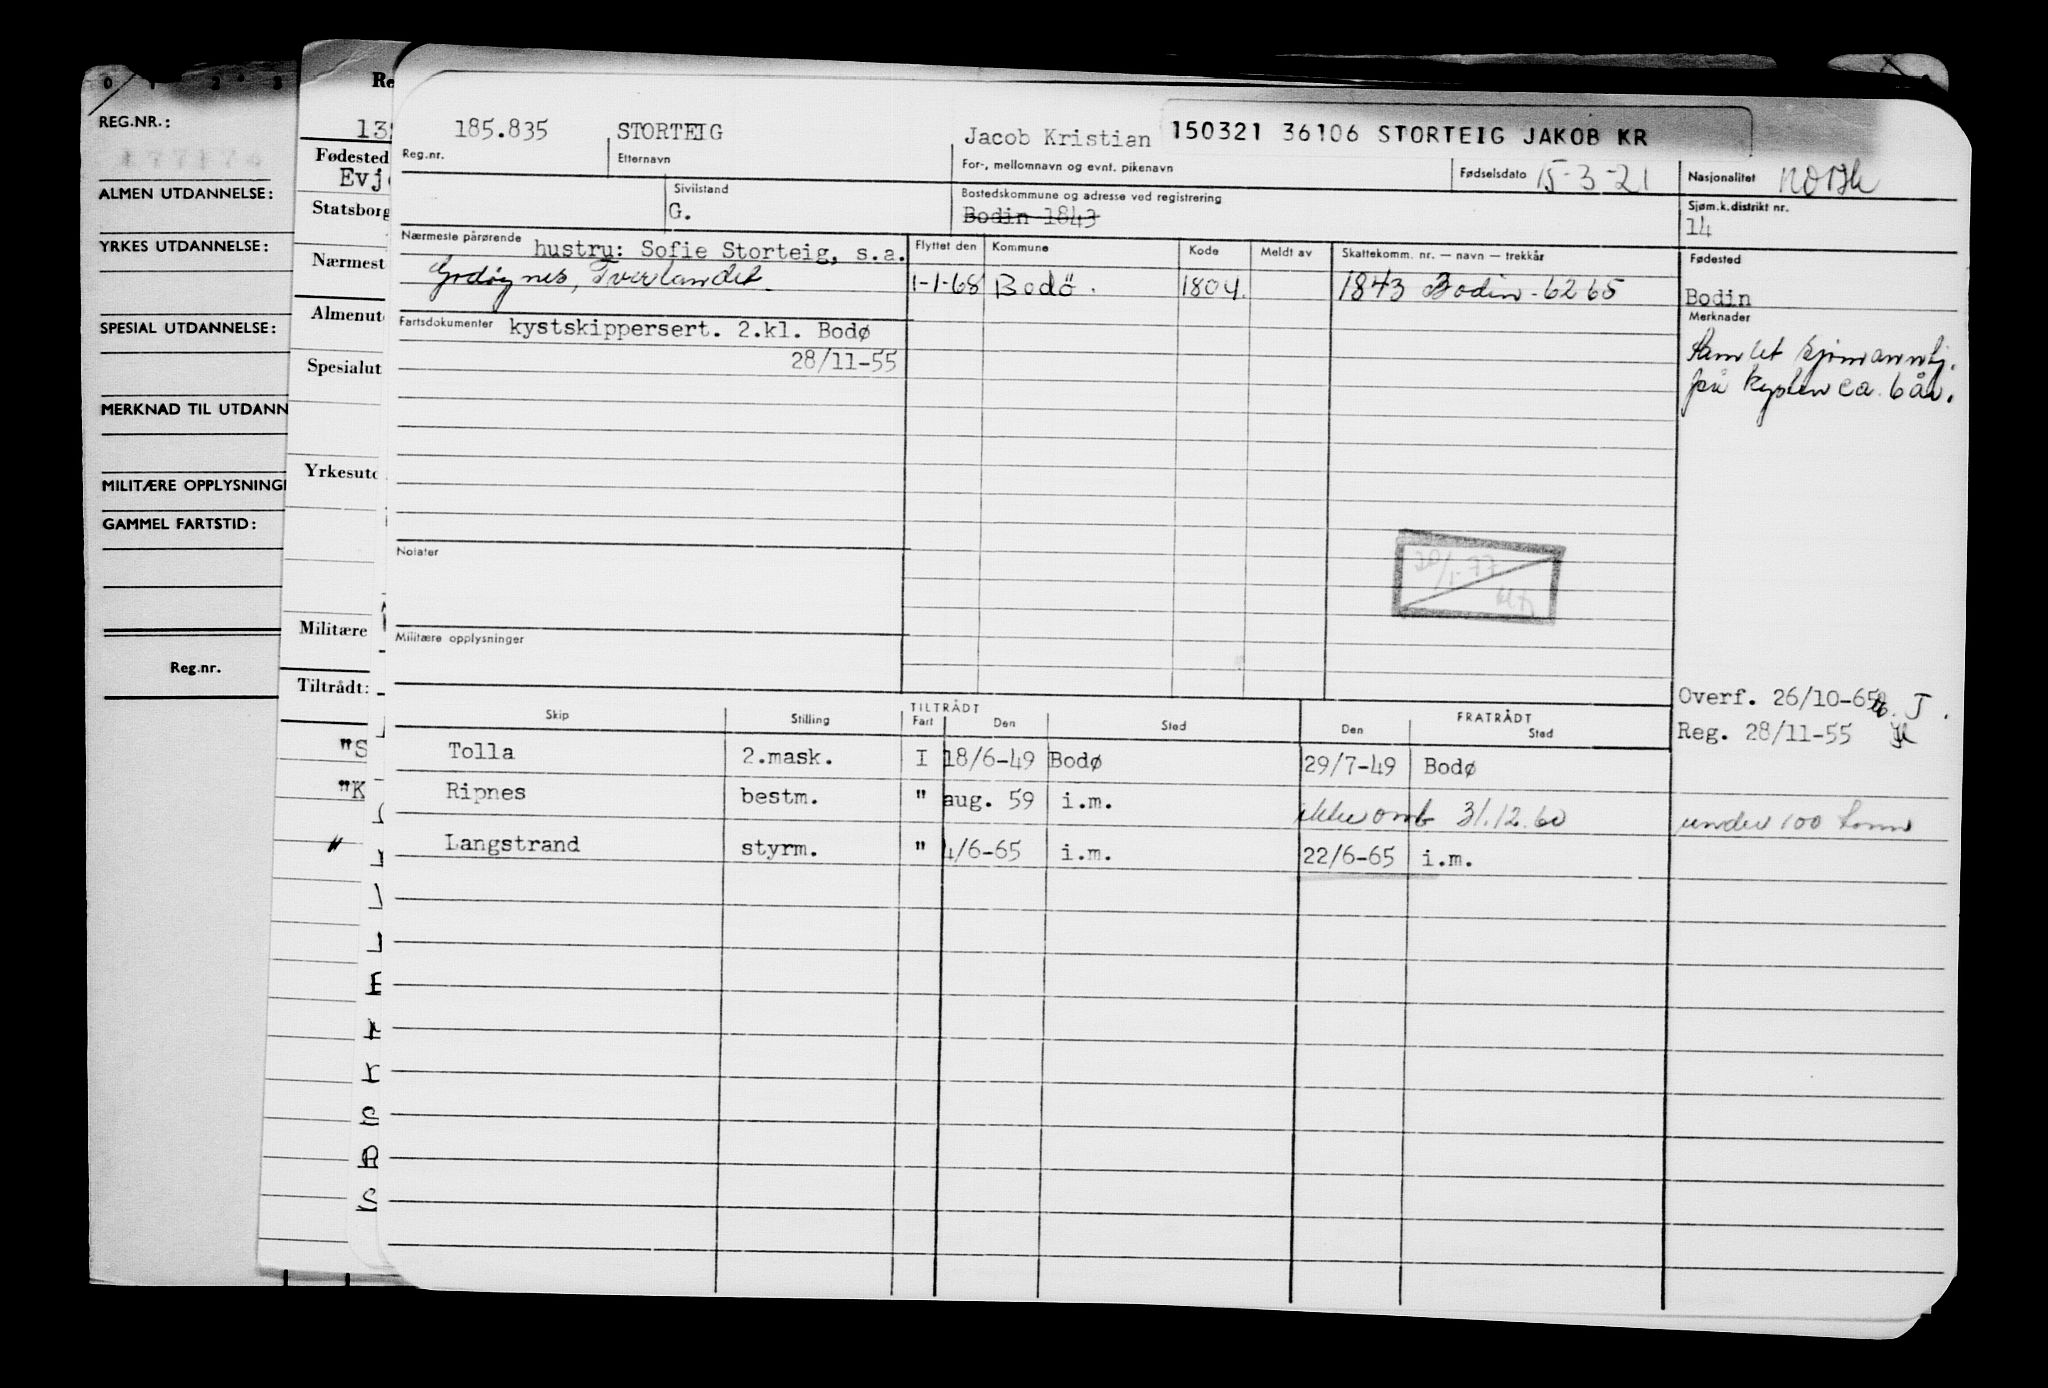 0 1 2 3
REG.NR.:
ALMEN UTDANNELSE:
YRKES UTDANNELSE:
SPESIAL UTDANNELSE:
MERKNAD TIL UTDANN
MILITÆRE OPPLYSNING
GAMMEL FARTSTID:
Reg.nr.
Re
Fødested
Evj
Statsborg
Nærmest
Almenut
Spesialut
Yrkesutd
Militære
Tiltrådt:
"S
"K
"
185.835 STORTEIG Jacob Kristian 150321 36106 STORTEIG JAKOB KR
Reg.nr. Etternavn For-, mellomnavn og evnt. pikenavn Fødselsdato 15-3-21 Nasjonalitet norsk
Sivilstand Bostedskommune og adresse ved registrering Sjøm.k.distrikt nr.
G. Bodin 1843 14
Nærmeste pårørende hustru: Sofie Storteig, s.a. Flyttet den Kommune Kode Meldt av Skattekomm. nr. — navn — trekkår Fødested
Godøynes, Tverlandet. 1-1-68 Bodö. 1804. 1843 Bodin-6265 Bodin
Fartsdokumenter kystskippersert. 2.kl. Bodø Merknader
28/11-55 Samlet sjømannstj.
på kysten ca. 6 år.
Notater
30/1-77
Militære opplysninger
Overf. 26/10-65 J.
Reg. 28/11-55
Skip Stilling TILTRÅDT Fart Den Sted FRATRÅDT Den Sted
Tolla 2.mask. I 18/6-49 Bodø 29/7-49 Bodø
Ripnes bestm. " aug. 59 i.m. ikke omb 31.12.60 under 100 tonn
Langstrand styrm. " 4/6-65 i.m. 22/6-65 i.m.